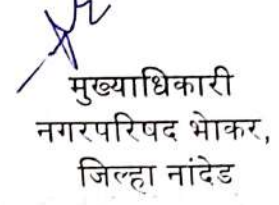 मुख्याधिकारी
नगरपरिषद भोकर,
जिल्हा नांदेड